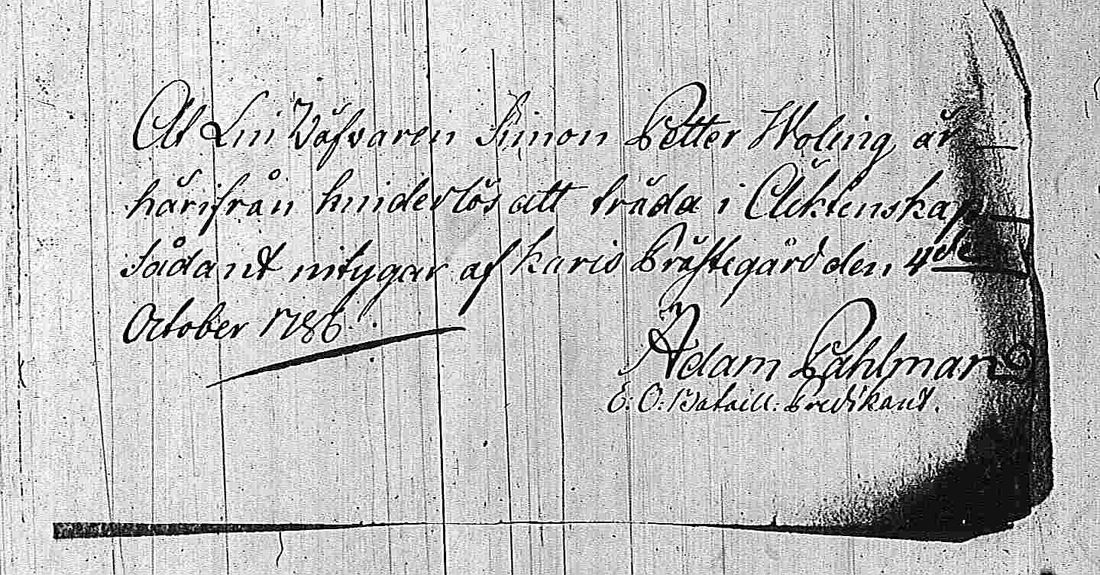 At Lin Väfvaren Simon Petter Woling är
härifrån hinderlös att träda i Ächtenskap
Sådant intygar af Karis Prästegård den 4de
October 1786.
Adam Pahlman
E. O. Bataill: Predikant.